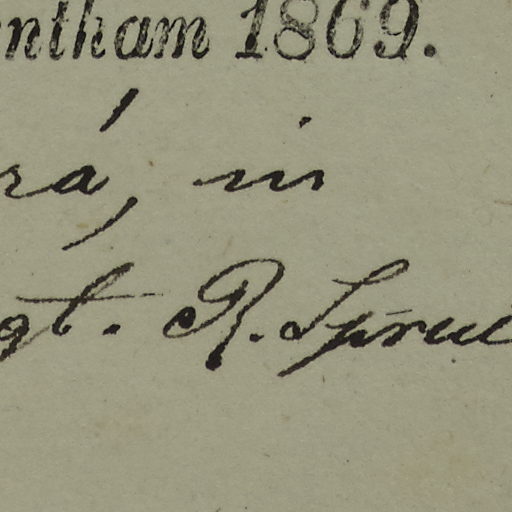 ntham 1869.
rá, in
gt. R. Spruc